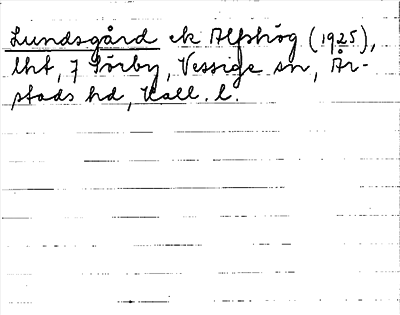 Lundsgård ek Alfshög (1925),
lht, 7 Sörby, Vessige sn, År-
stads hd, Hall. l.